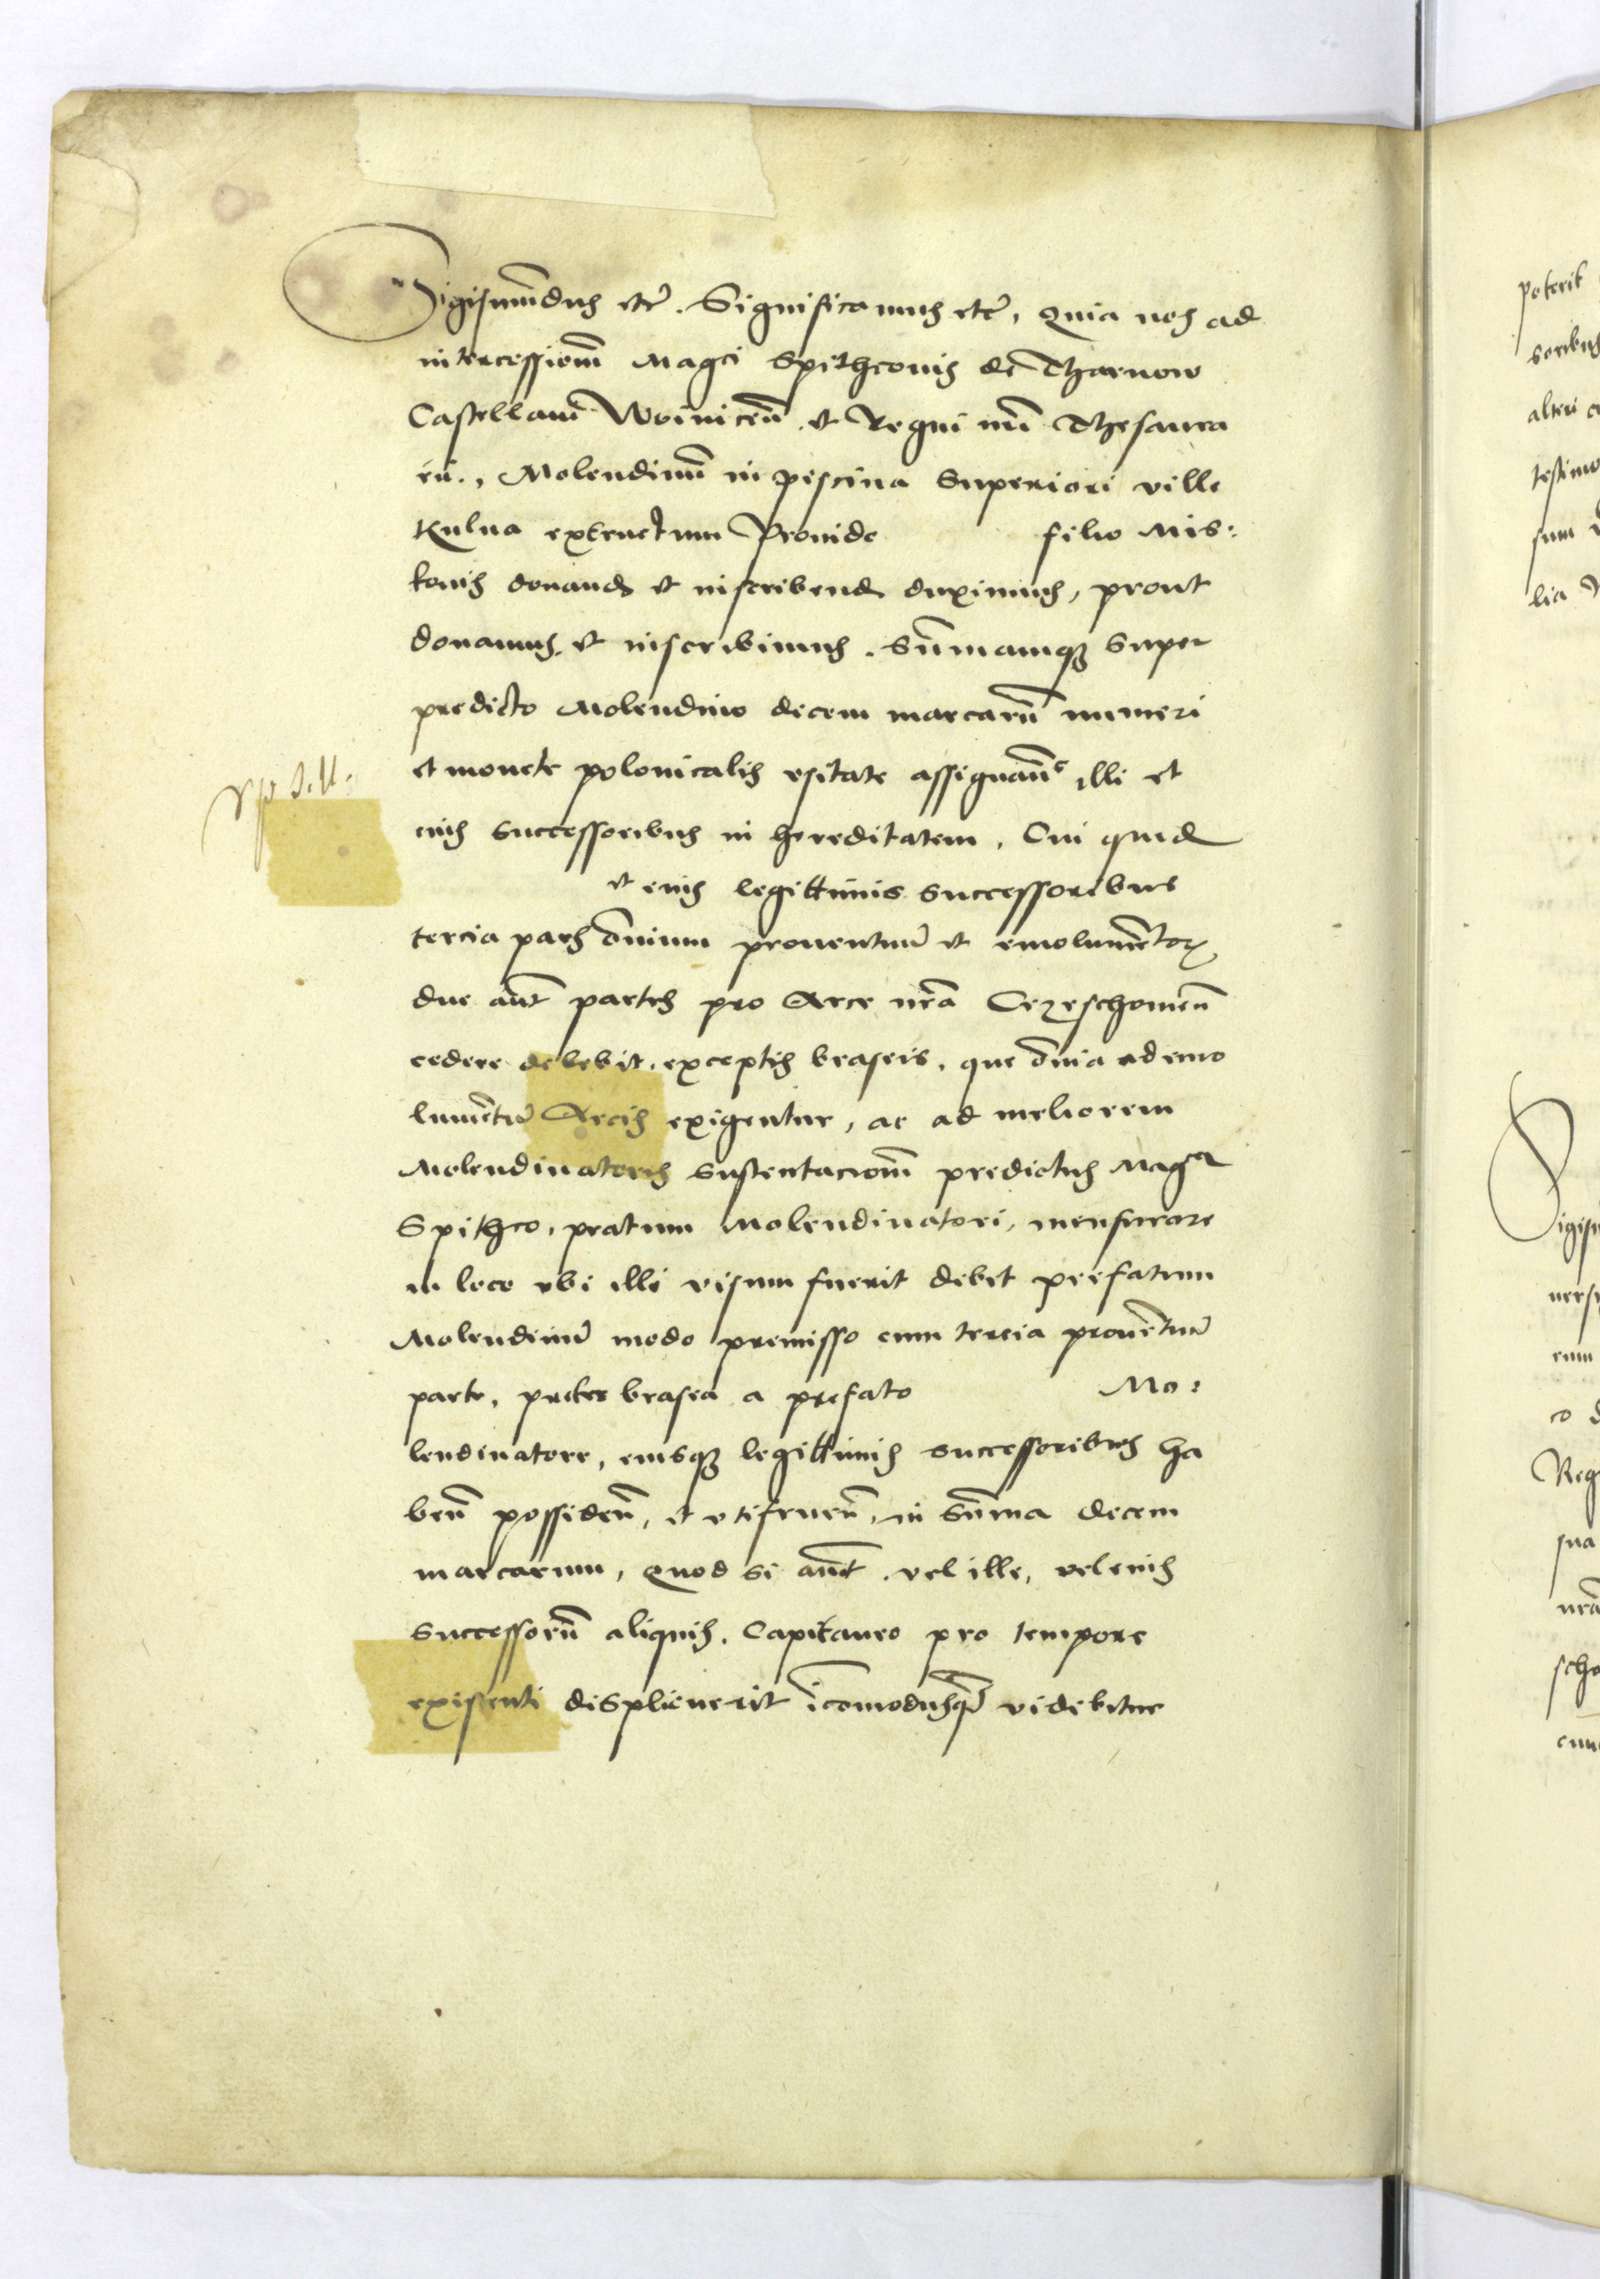 Sigismundus etc. Significamus etc. Quia nos ad
intercessionem Magci Spithconis de Tharnow
Castellani Woiniceñ et Regni nri Thesaura
rii., Molendinũ in piscina superiori ville
Kulna extructum Provido filio Mis:
konis donand et inscribend duximus, prout
donamus et inscribimus. Summamq super
predicto Molendino decem marcarũ numeri
et monete polonicalis usitate assignam9 illi et
eius successoribus in hereditatem. Cui quid
et eius legittimis successoribus
tercia pars omnium proventuũ et emolumentor
due aut partes pro Arce nra Crzeschovieñ
cedere debebit. exceptis braseis. que omnia ad emo
lumentũ Arcis exigentur, ac ad meliorem
Molendinatoris sustentacionem predictus Mag
Spithco, pratum Molendinatori, mensurare
in loco ubi illi visum fuerit debet prefatum
Molendinũ modo premisso cum tercia proventuũ
parte, preter brasea a prefato Mo:
lendinatore, eiusq legittimis successoribus ha
beñ possideñ, et utifrueñ, in summa decem
marcarum, Quod si aut vel ille, vel eius
successorũ aliquis. Capitaneo pro tempore
existenti displicuerit icomodusq videbitur
poterit
soribus
alteri
testimo
sum
lia
Sigis
vers
cum
co
Reg
sua
nra
scho